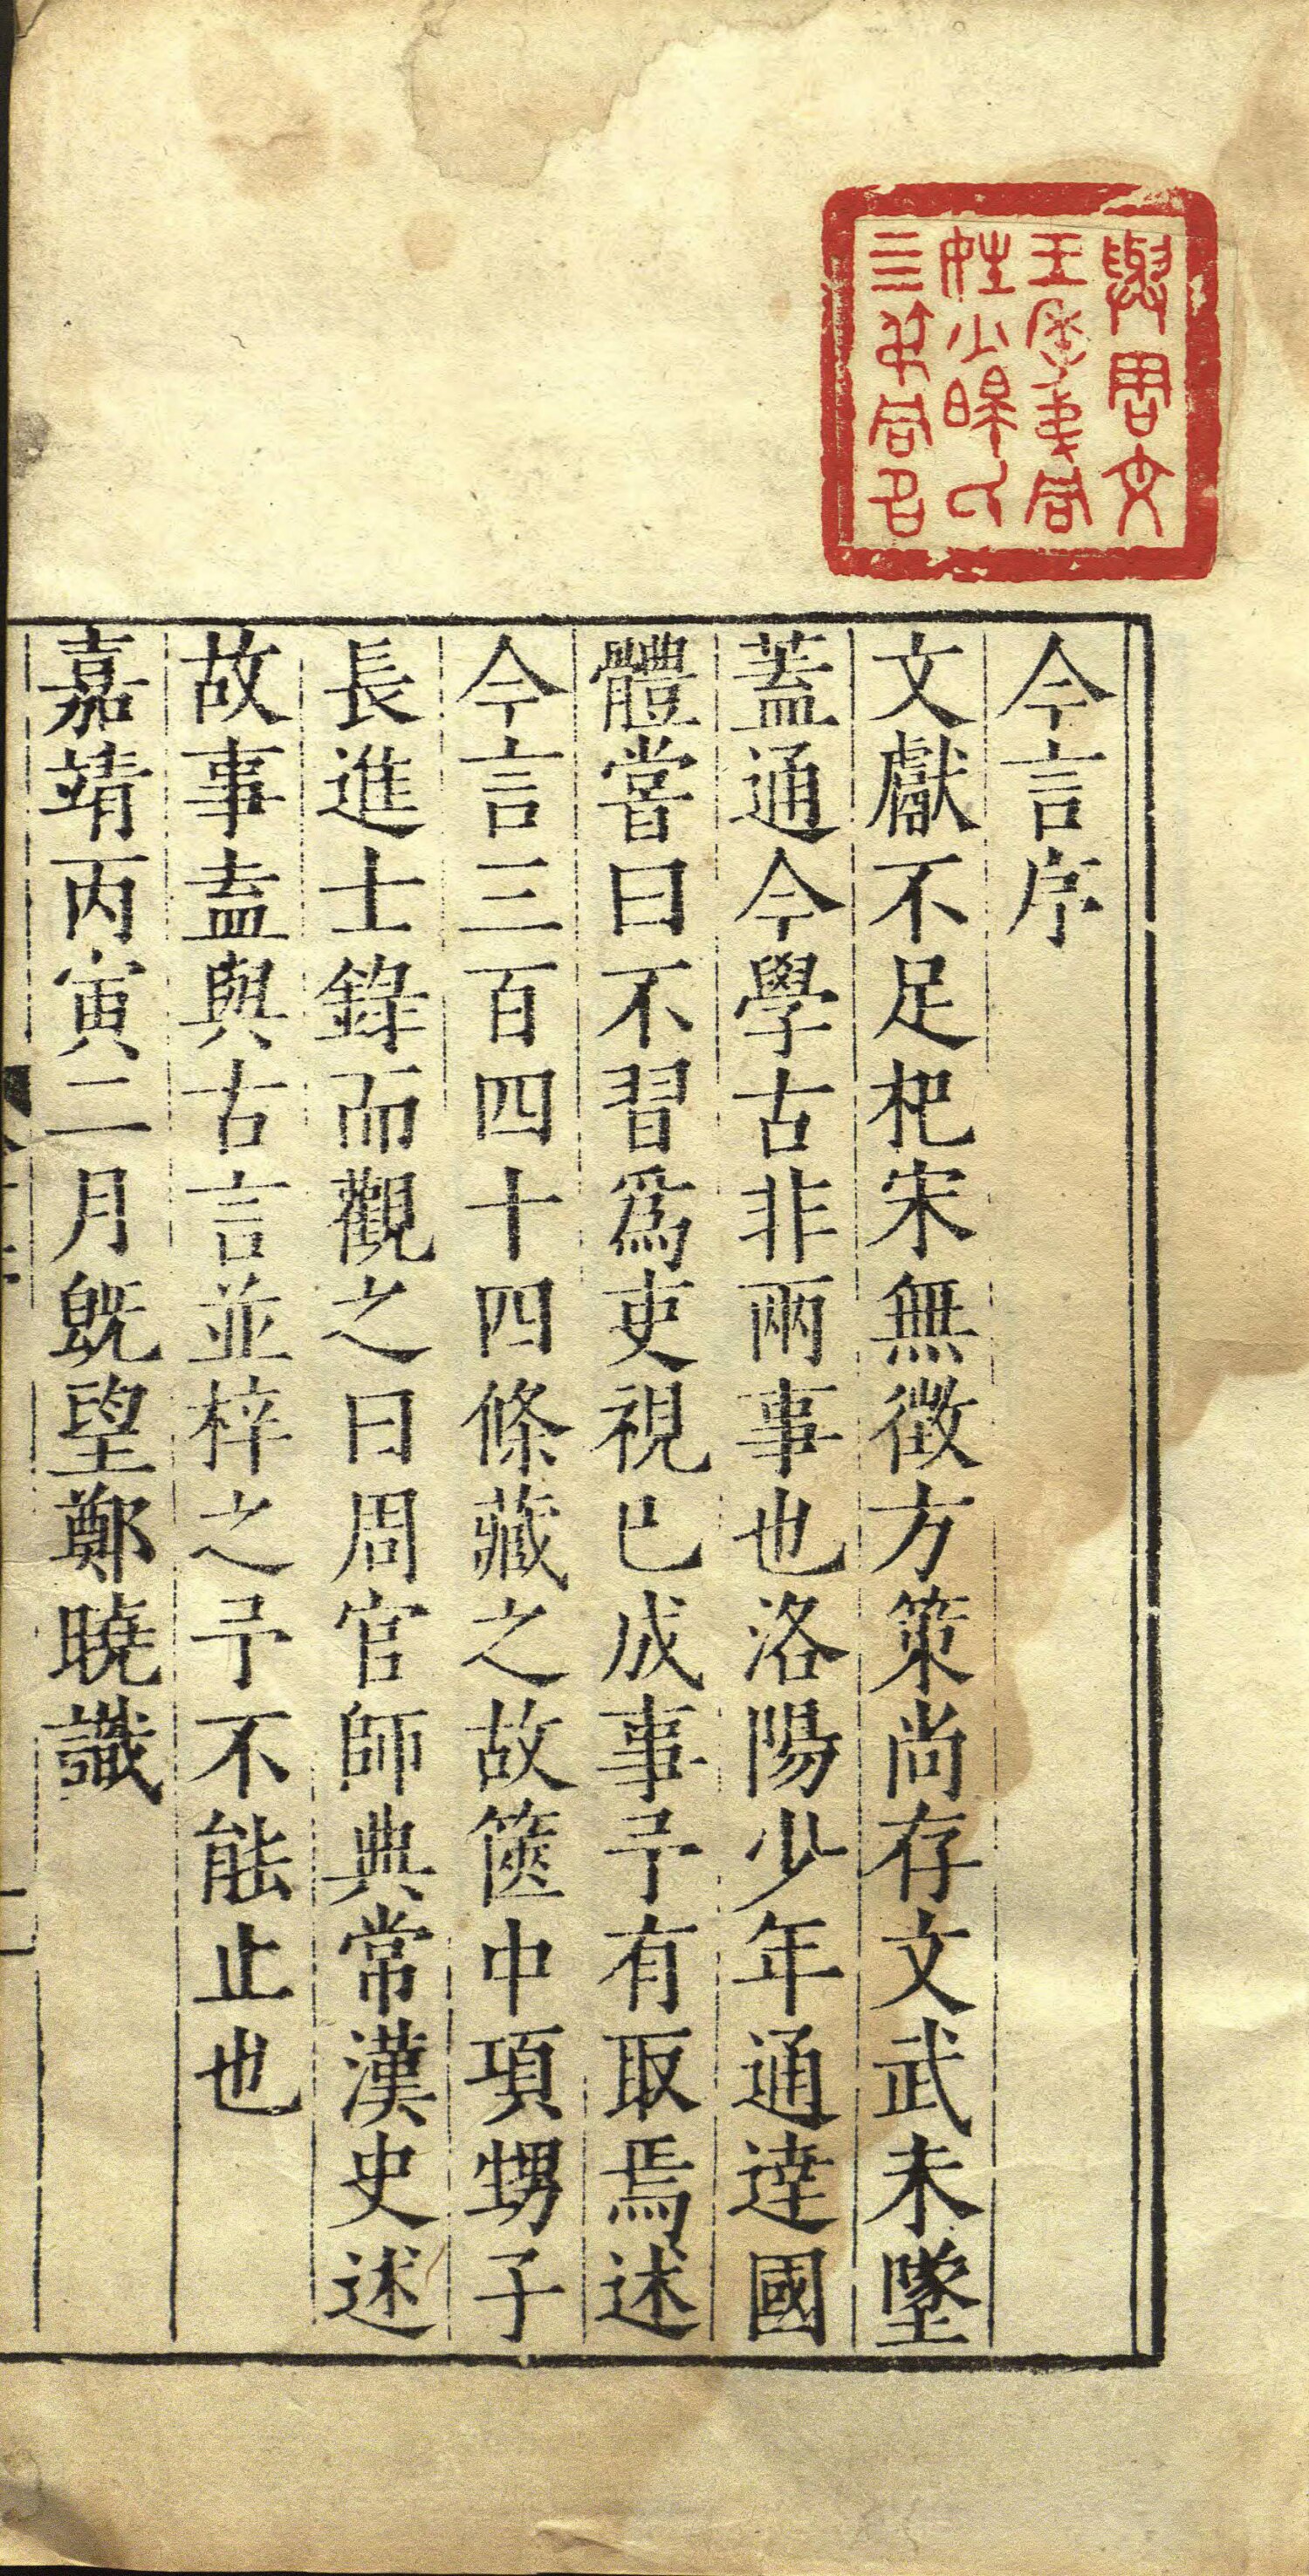 與周文
王弟同
姓少暤
三弟同名
今言序
文獻不足杞宋無徵方策尚存文武未墜
蓋通今學古非兩事也洛陽少年通達國
體嘗曰不習爲吏視已成事予有取焉述
今言三百四十四條藏之故篋中項甥子
長進士錄而觀之曰周官師典常漢史述
故事盍與古言並梓之予不能止也
嘉靖丙寅二月旣望鄭曉識